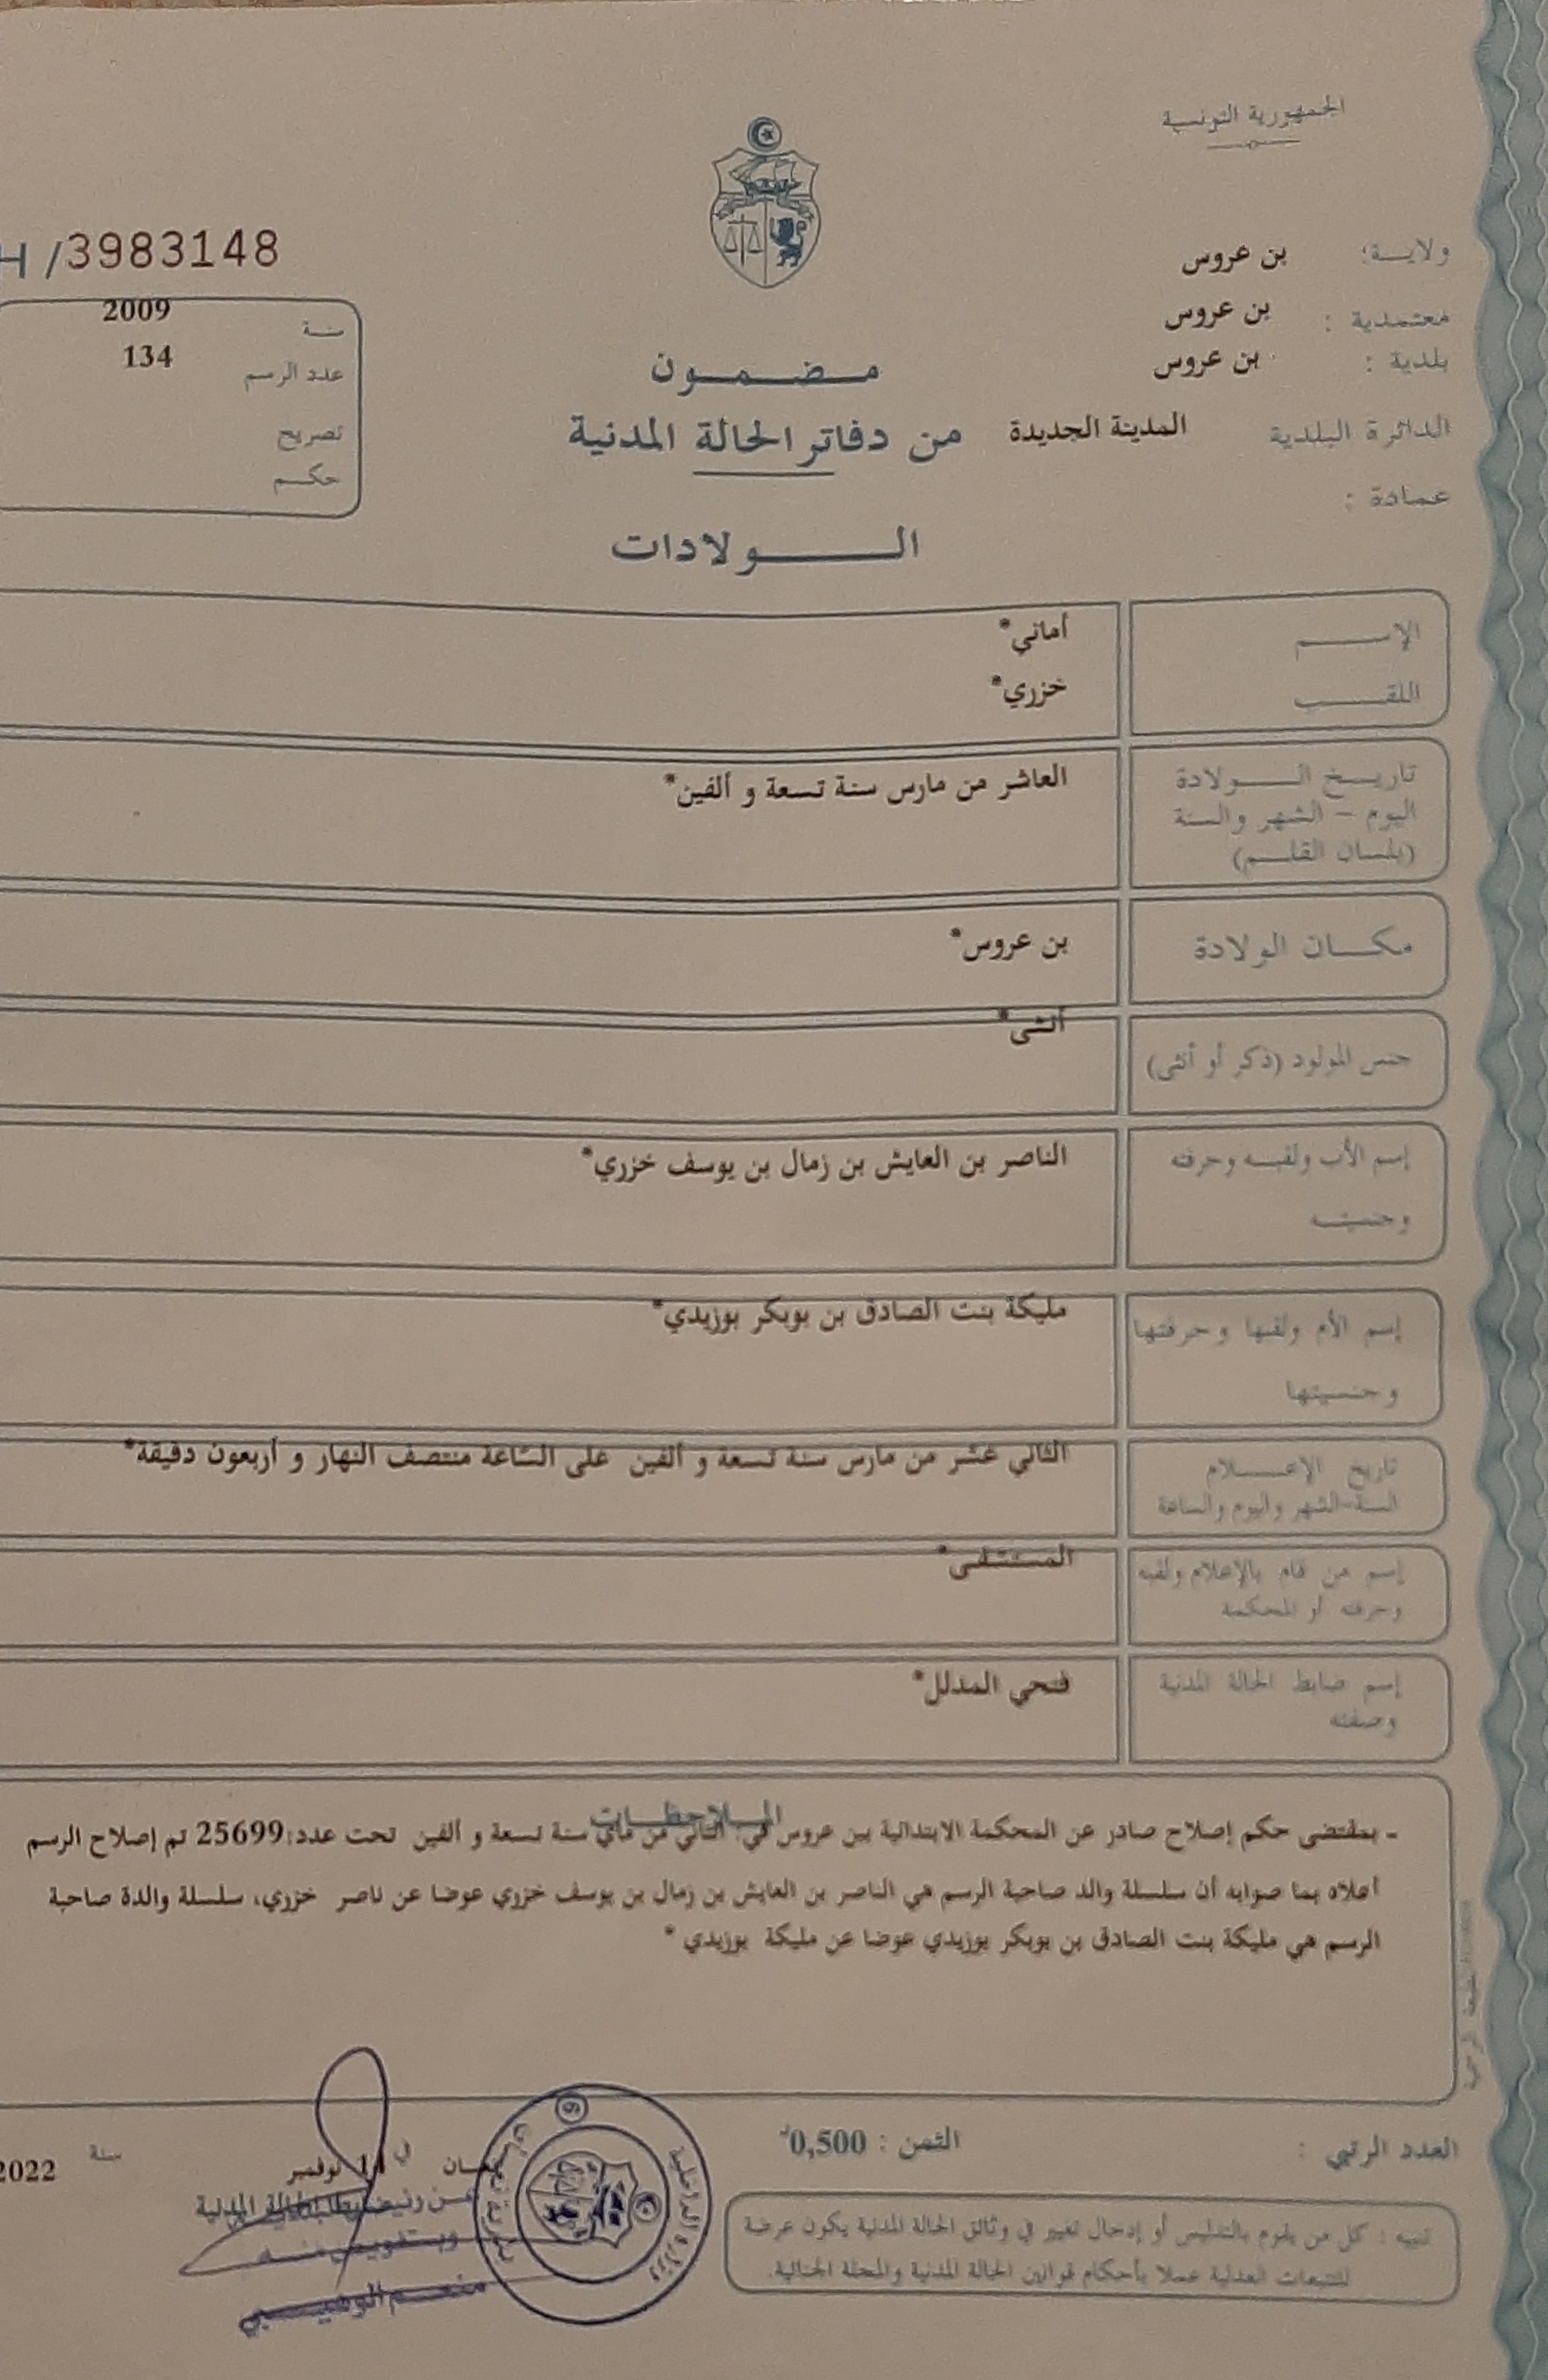 الجمهورية التونسية
ولايـة: بن عروس
معتمدية : بن عروس
بلدية : بن عروس
الدائرة البلدية المدينة الجديدة
عمادة :
H /3983148
سنة 2009
عدد الرسم 134
تصريح
حكم
مضمون
من دفاتر الحالة المدنية
الولادات
الإسم أماني*
اللقب خزري*
تاريخ الولادة العاشر من مارس سنة تسعة و ألفين*
اليوم - الشهر والسنة
(بلسان القلم)
مكان الولادة بن عروس*
جنس المولود (ذكر أو أنثى) أنثى*
إسم الأب ولقبه وحرفته الناصر بن العايش بن زمال بن يوسف خزري*
وجنسيته
إسم الأم ولقبها وحرفتها مليكة بنت الصادق بن بوبكر بوزيدي*
وجنسيتها
تاريخ الإعلام الثاني عشر من مارس سنة تسعة و ألفين على الساعة منتصف النهار و أربعون دقيقة*
السنة-الشهر واليوم والساعة
إسم من قام بالإعلام ولقبه المستشفى*
وحرفته أو المحكمة
إسم ضابط الحالة المدنية فتحي المدلل*
وصفته
الملاحظات
- بمقتضى حكم إصلاح صادر عن المحكمة الابتدائية ببن عروس في: الثاني من ماي سنة تسعة و ألفين تحت عدد:25699 تم إصلاح الرسم
أعلاه بما صوابه أن سلسلة والد صاحبة الرسم هي الناصر بن العايش بن زمال بن يوسف خزري عوضا عن ناصر خزري، سلسلة والدة صاحبة
الرسم هي مليكة بنت الصادق بن بوبكر بوزيدي عوضا عن مليكة بوزيدي *
العدد الرتبي :
الثمن : 0,500د
في 11 نوفمبر سنة 2022
وبتفويض منه
تنبيه : كل من يقوم بالتدليس أو إدخال تغيير في وثائق الحالة المدنية يكون عرضة
للتتبعات العدلية عملا بأحكام قوانين الحالة المدنية والمجلة الجنائية.
وزارة الداخلية